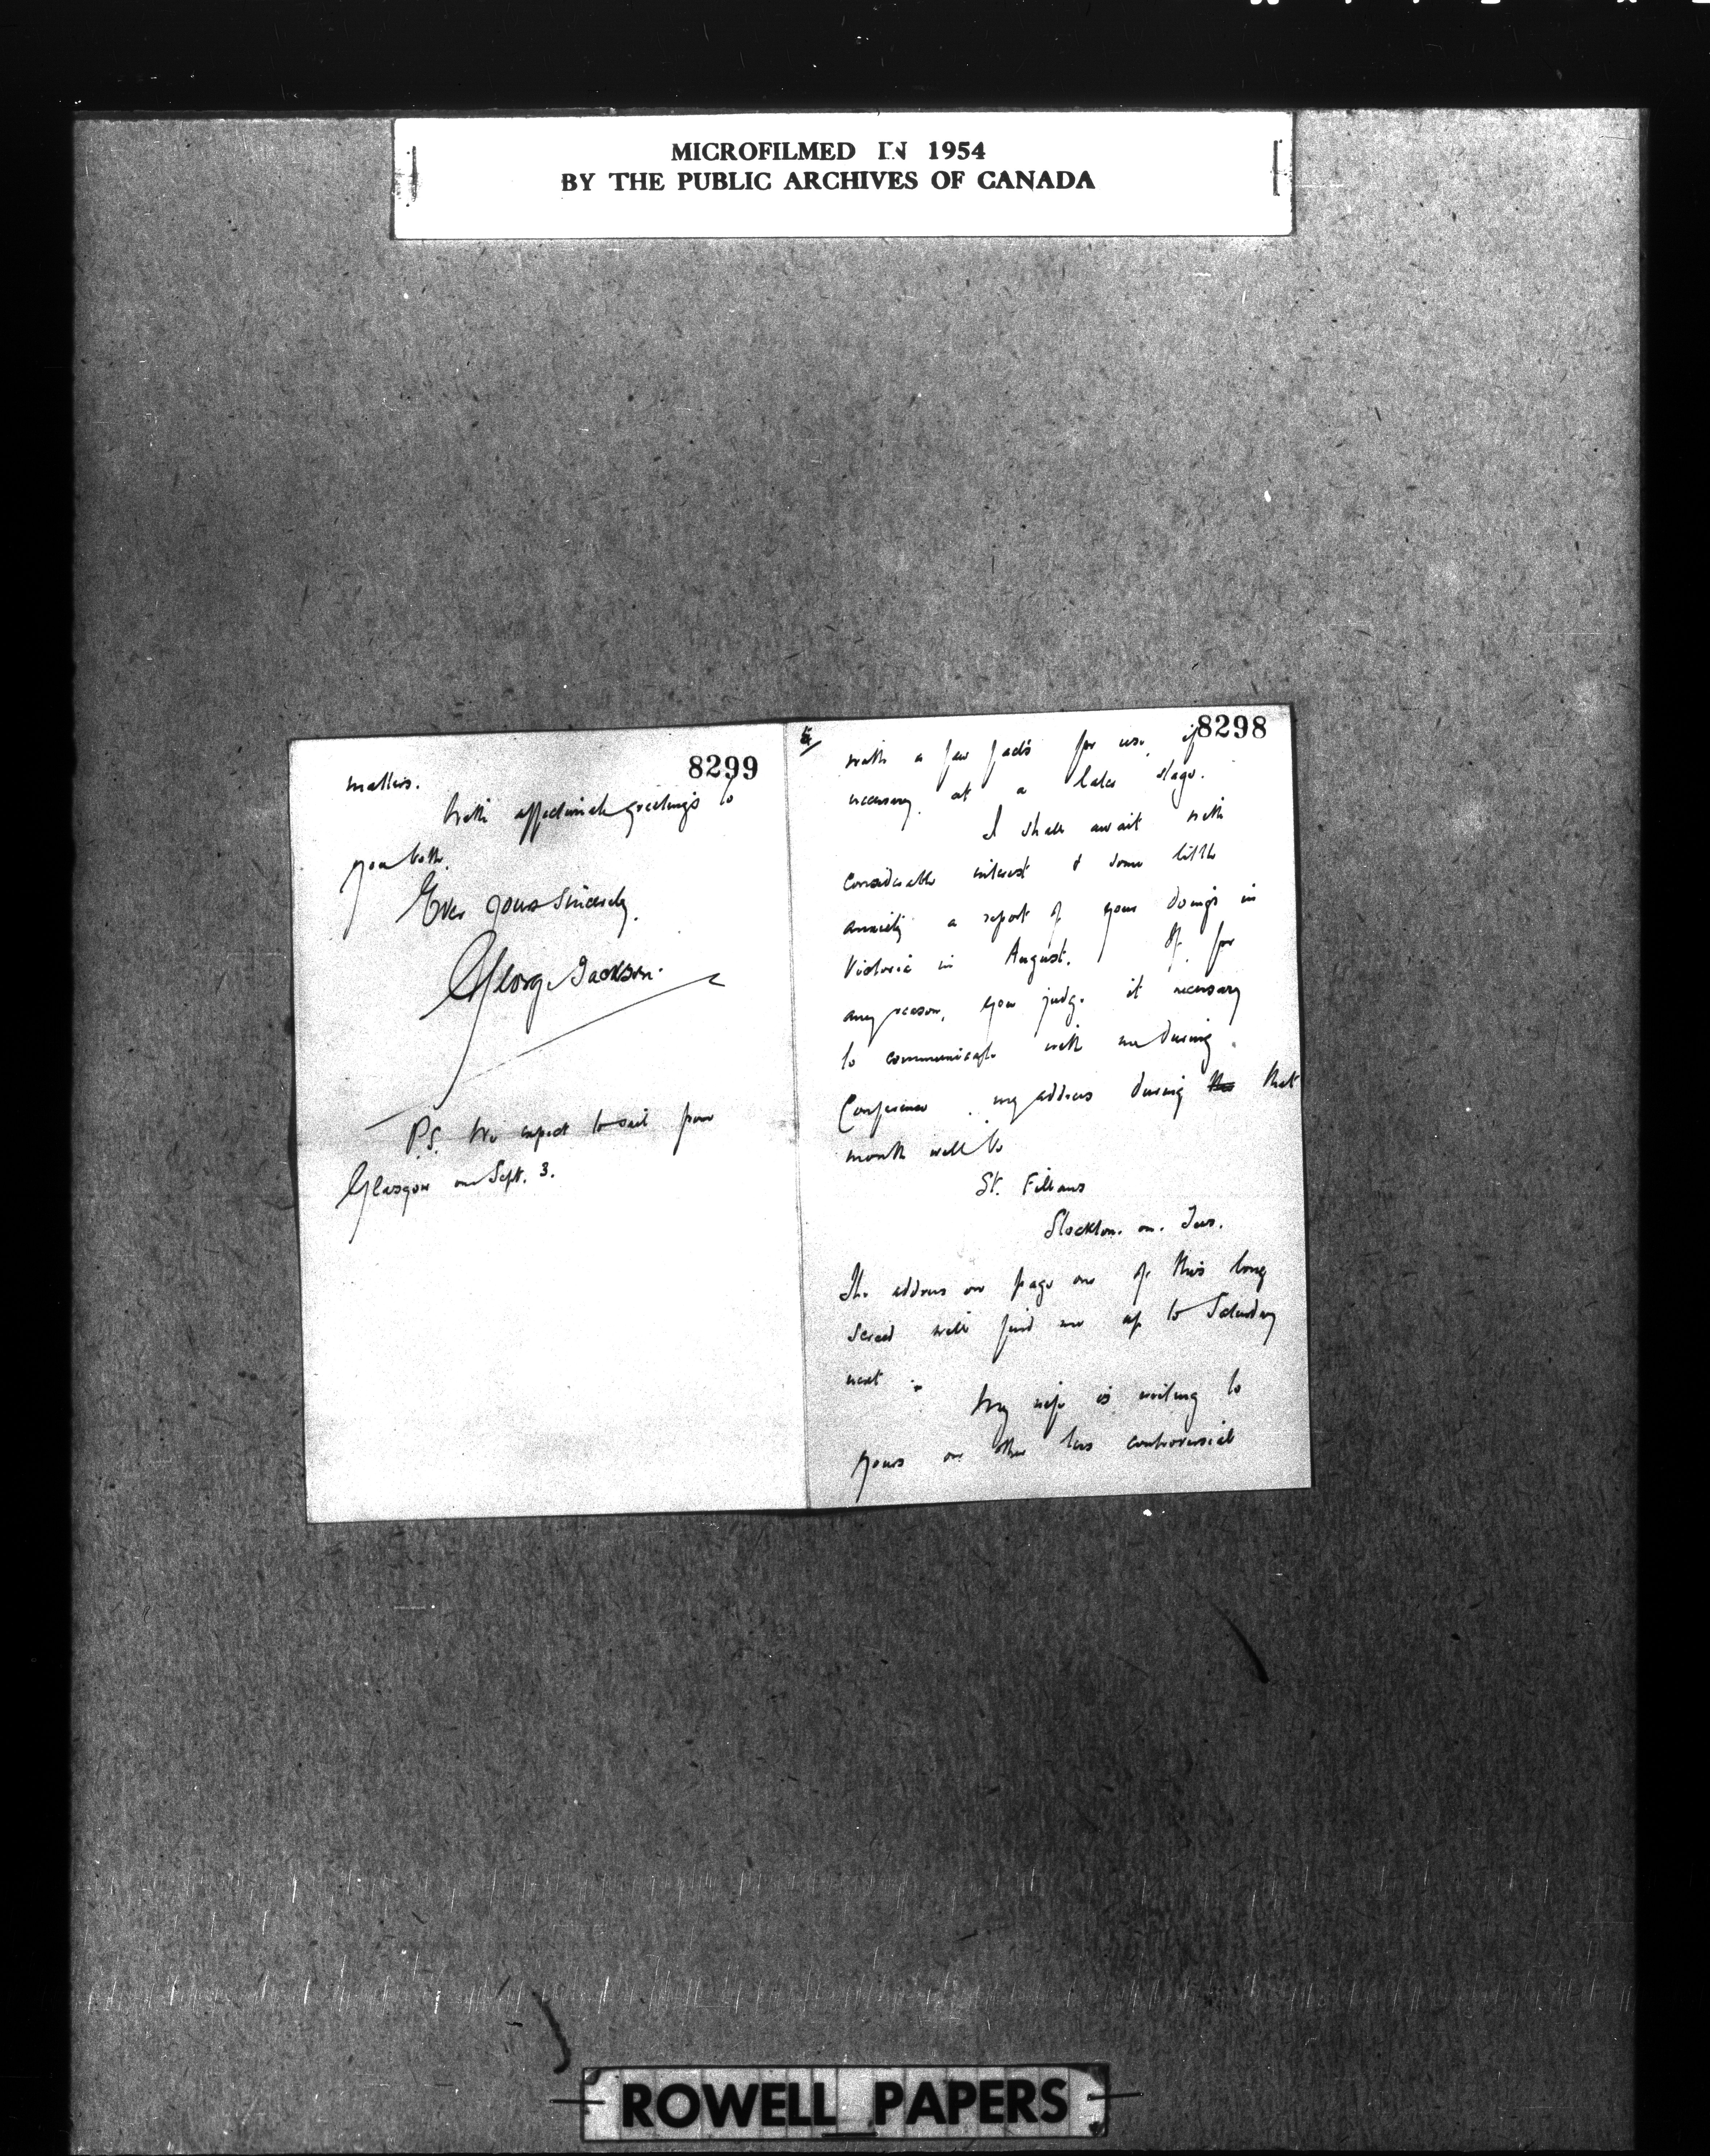 MICROFILMED IN 1954
BY THE PUBLIC ARCHIVES OF CANADA
8298
with a few facts for use, if
necessary, at a later stage.
I shall await with
considerable interest & some little
anxiety a report of your doings in
Victoria in August. If, for
any reason, you judge it necessary
to communicate with me during
Conference my address during the that
month will be
St. Fillans
Stockton. on. Tees.
The address on page one of this long
screed will find me up to Saturday
next.
My wife is writing to
yours on other less controversial
8299
matters.
With affectionate greetings to
you both,
Ever yours sincerely,
George Jackson.
P.S. We expect to sail from
Glasgow on Sept. 3.
ROWELL PAPERS